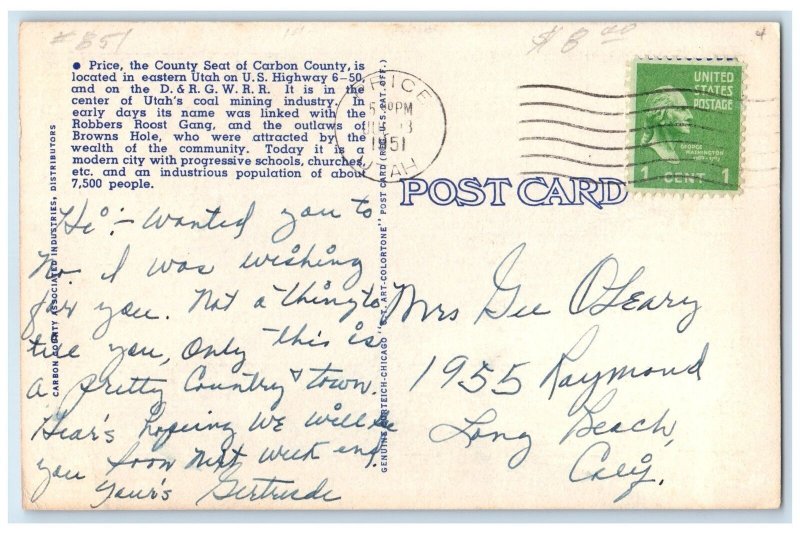 #851
$8.00
● Price, the County Seat of Carbon County, is
located in eastern Utah on U.S. Highway 6-50,
and on the D. & R. G. W. R. R. It is in the
center of Utah's coal mining industry. In
early days its name was linked with the
Robbers Roost Gang, and the outlaws of
Browns Hole, who were attracted by the
wealth of the community. Today it is a
modern city with progressive schools, churches,
etc. and an industrious population of about
7,500 people.
PRICE
PM
1951
UTAH
UNITED
STATES
POSTAGE
GEORGE
WASHINGTON
1 CENT 1
POST CARD
CARBON COUNTY ASSOCIATED INDUSTRIES, DISTRIBUTORS
GENUINE CURTEICH-CHICAGO "C.T. ART-COLORTONE" POST CARD (REG. U.S. PAT. OFF.)
Hi:- Wanted you to
No I was wishing
for you. Not a thing to
tell you, Only this is
a pretty Country & town.
Hear's hopeing We will see
you soon next week end.
Your's Gertrude
Mrs Gee O'Leary
1955 Raymond
Long Beach,
Calif.